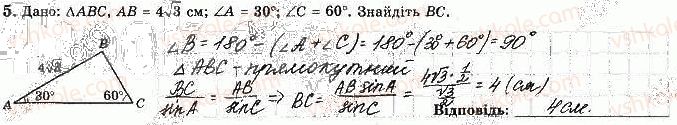 5. Дано: △ABC, AB = 4√3 см; ∠A = 30°; ∠C = 60°. Знайдіть BC.
∠B = 180° - (∠A + ∠C) = 180° - (30° + 60°) = 90°
△ABC - прямокутний
BC/sinA = AB/sinC => BC = AB sinA/sinC = (4√3 · 1/2)/(√3/2) = 4 (см)
B
4√3
A 30° 60° C
Відповідь: 4см.